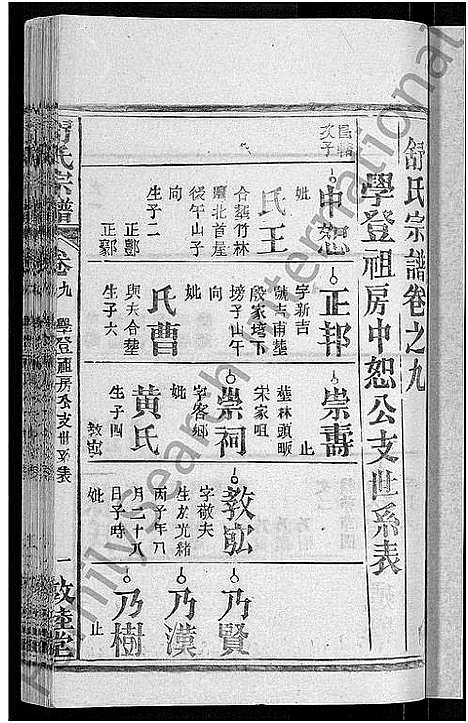 舒氏宗譜卷之九
學登祖房中恕公支世系表
中恕
妣
王氏
合葬竹林
壩北首屋
後午山子
向
生子二
正酆
正鄒
正邦
字新吉
號吉甫葬
殷家塆下
塝子山午
向
妣
曹氏
與夫合葬
生子六
崇壽
止
葬林頭畈
宋家咀
崇祠
字客鄉
妣
黃氏
生子四
教宖
字敬夫
生於光緒
丙子年八
月二十八
日子時
妣
乃賢
乃漢
乃樹
止
舒氏宗譜
卷九
學登祖房公支世系表
一
敦睦堂
FamilySearch International